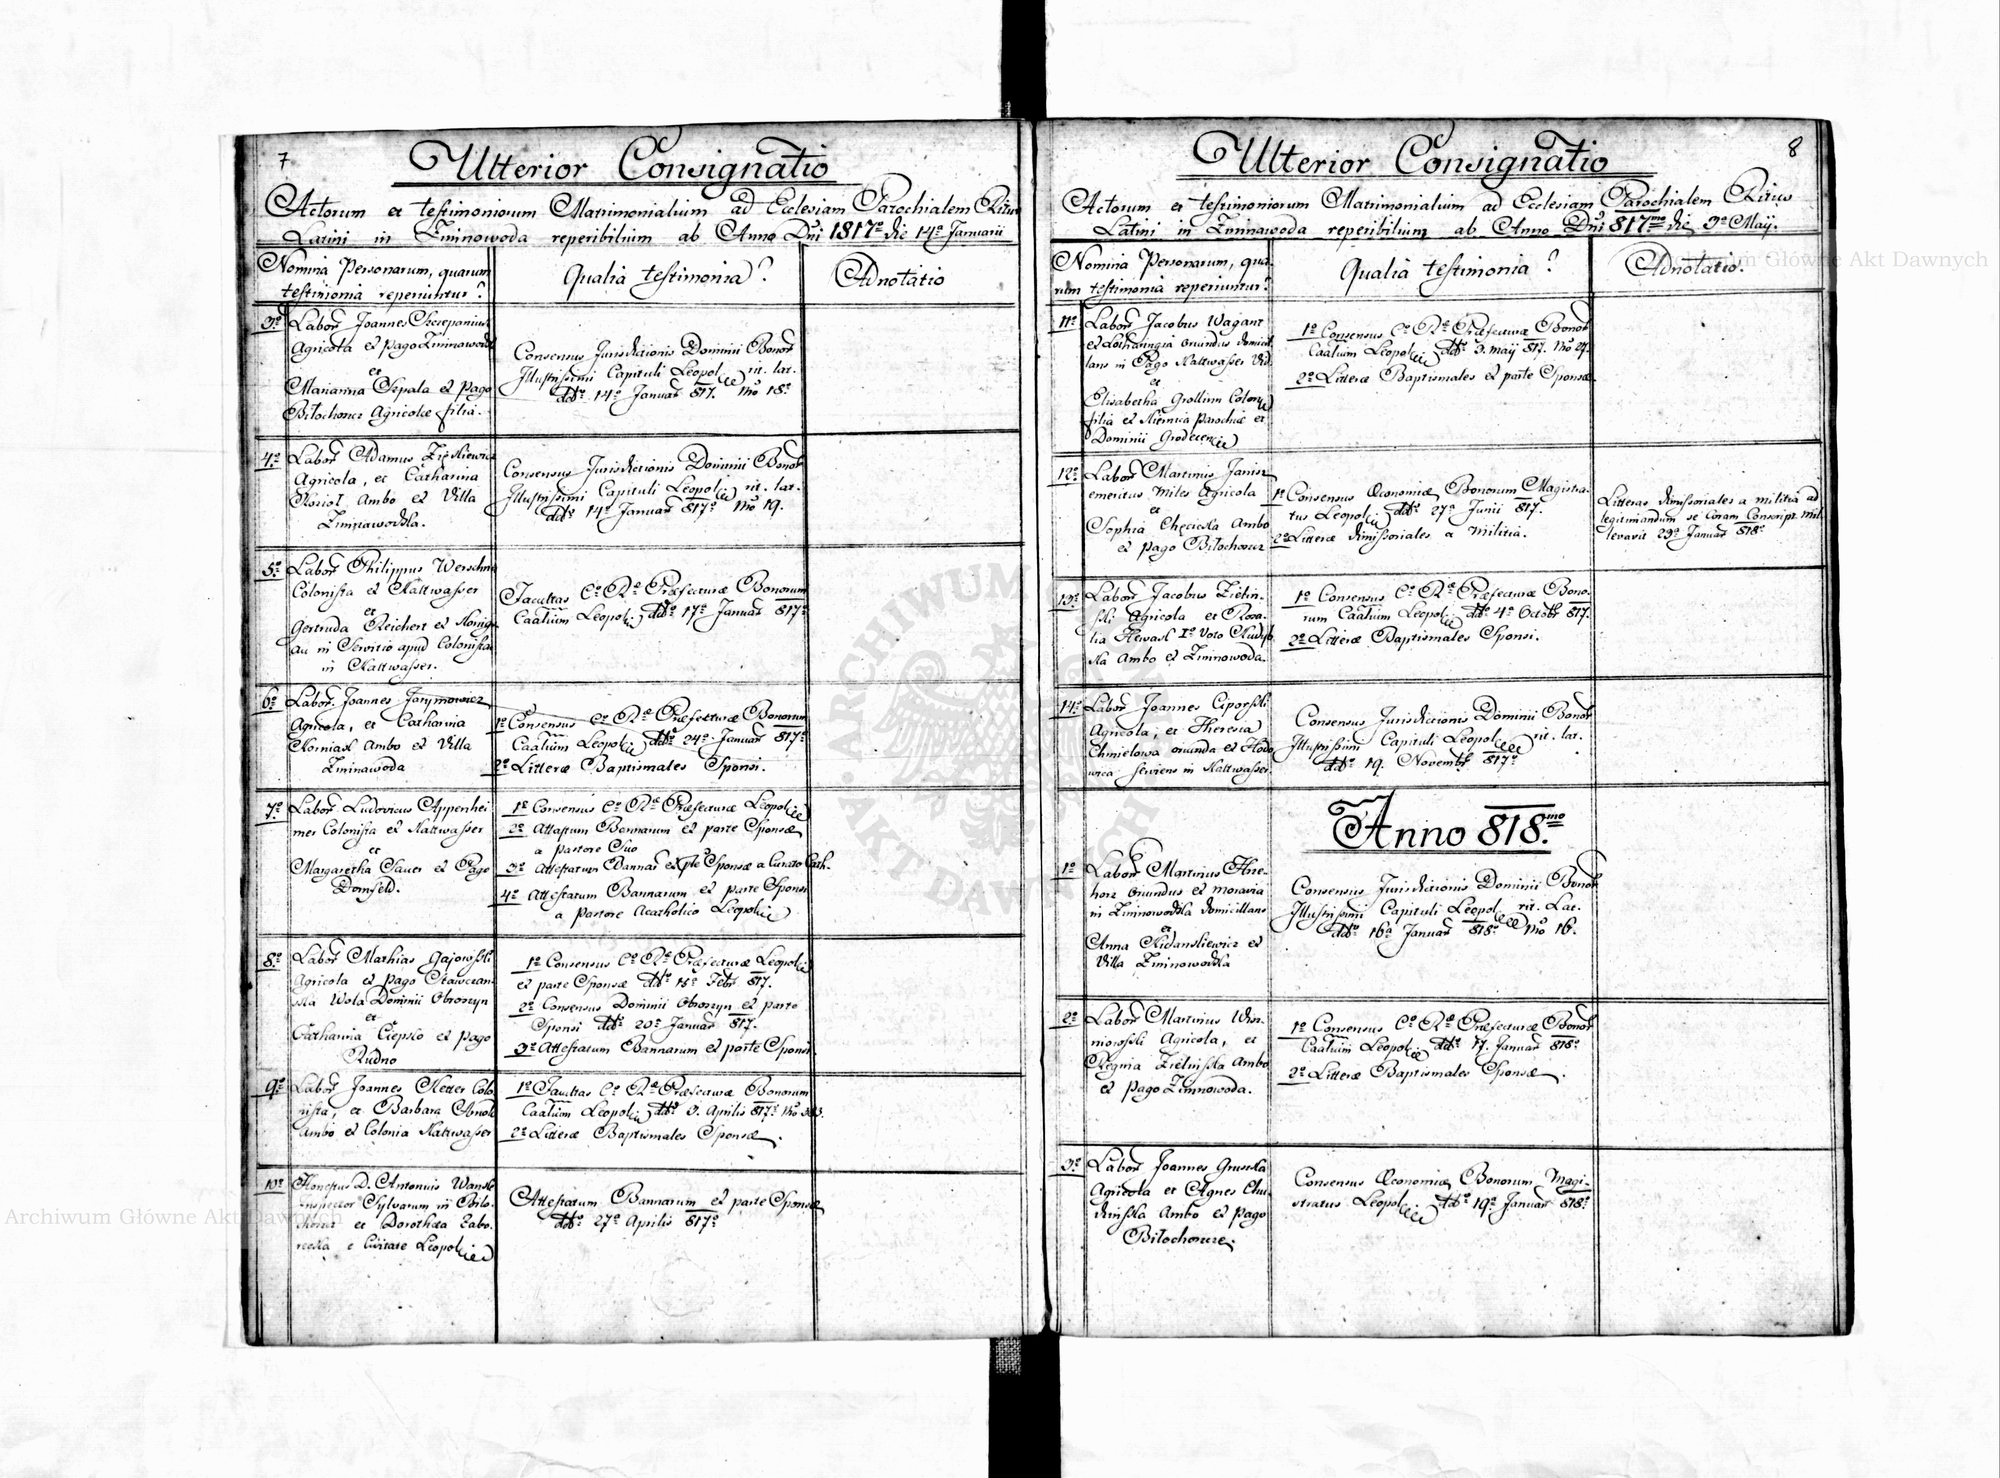 7
Ulterior Consignatio
Actorum et testimoniorum Matrimonialium ad Ecclesiam Parochialem Ritus
Latini in Zimnowoda reperibilium ab Anno Dni 1817º die 14ª Januarii
Nomina Personarum, quarum
testimonia reperiuntur?
Qualia testimonia?
Adnotatio
3º
Labor Joannes
Agricola ex Pago Zimnawoda
et
Marianna Sepala ex Pago
Bilochorcz Agricolæ filia.
Consensus Jurisdictionis Dominii Bonor
Illustrissimi Capituli Leopol rit. lat.
ddto 14ª Januar 817. Nro 18º
4º
Labor Adamus
Agricola, et Catharina
Koziol Ambo ex Villa
Zimnawodka.
Consensus Jurisdictionis Dominii Bonor
Illustrissimi Capituli Leopol rit. lat.
ddto 14ª Januar 817º Nro 19.
5º
Labor Philippus
Colonista ex Kaltwasser
et
Gertruda Reichert ex Konig
au in Servitio apud Colonistam
in Kaltwasser.
Facultas Cº Rª Præfecturæ Bonorum
Caalium Leopol ddto 17ª Januar 817º
6º
Labor Joannes Jarymowicz
Agricola, et Catharina
Korniak Ambo ex Villa
Zimnawoda
1º Consensus Cº Rª Præfecturæ Bonorum
Caalium Leopol ddto 24ª Januar 817º
2º Litteræ Baptismales Sponsi.
7º
Labor Ludovicus Appenhei
mer Colonista ex Kaltwasser
et
Margaretha Sauer ex Pago
Dornfeld.
1º Consensus Cº Rª Præfecturæ Leopol
2º Attestatum Bannarum ex parte Sponsæ
a pastore Suo
3º Attestatum Bannar ex pte Sponsæ a Curato Cath.
4º Attestatum Bannarum ex parte Sponsi
a pastore Acatholico Leopol
8º
Labor Mathias Gajowski
Agricola ex Pago Stawczan
ska Wola Dominii Obroszyn
et
Catharina Ciepko ex Pago
Rudno
1º Consensus Cº Rª Præfecturæ Leopol
ex parte Sponsæ ddto 15ª Febr 817.
2º Consensus Dominii Obroszyn ex parte
Sponsi ddto 20ª Januar 817.
3º Attestatum Bannarum ex parte Sponsi
9º
Labor Joannes Ketter Colo
nista, et Barbara
Ambo ex Colonia Kaltwasser
1º Facultas Cº Rª Præfecturæ Bonorum
Caalium Leopol ddto 3. Aprilis 817º
2º Litteræ Baptismales Sponsæ.
10º
Honestus D. Antonius
Inspector Sylvarum in Bilo
horcz et Dorothea Zabo
recka e Civitate Leopol
Attestatum Bannarum ex parte Sponsæ
ddto 27ª Aprilis 817º
8
Ulterior Consignatio
Actorum et testimoniorum Matrimonialium ad Ecclesiam Parochialem Ritus
Latini in Zimnawoda reperibilium ab Anno Dni 817mo die 3ª Maij.
Nomina Personarum, qua
rum testimonia reperiuntur?
Qualia testimonia?
Adnotatio.
11º
Labor Jacobus Wagant
ex Lotharingia oriundus domicil
lans in Pago Kaltwasser Vid.
et
Elisabetha Grollim Coloni
filia ex Parochiæ et
Dominii
1º Consensus Cº Rª Præfecturæ Bonor
Caalium Leopol ddto 3. Maij 817. Nro 27.
2º Litteræ Baptismales ex parte Sponsæ.
12º
Labor Martinus Janisz
emeritus Miles Agricola
et
Sophia Checieka Ambo
ex Pago Bilochorcz
1º Consensus Œconomiæ Bonorum Magistra-
tus Leopol ddto 27ª Junii 817.
2º Litteræ dimissoriales a Militia.
Litteras dimissoriales a militia ad
legitimandum se Coram Conscript. Mil.
levavit 23ª Januar 818º
13º
Labor Jacobus Zielin-
ski Agricola et Rosa-
lia 1º Voto
Ambo ex Zimnowoda.
1º Consensus Cº Rª Præfecturæ Bono-
rum Caalium Leopol ddto 4ª Octobr 817.
2º Litteræ Baptismales Sponsi.
14º
Labor Joannes Ciporski
Agricola, et Theresia
Chmielowa oriunda ex Hodo
wica serviens in Kaltwasser
Consensus Jurisdictionis Dominii Bonor
Illustrissimi Capituli Leopol rit. lat.
ddto 19. Novembr 817º
Anno 818.mo
1º
Labor Martinus
oriundus ex Moravia
in Zimnowodka domicillans
et
Anna Kidanskiewicz ex
Villa Zimnowodka
Consensus Jurisdictionis Dominii Bonor
Illustrissimi Capituli Leopol rit. Lat.
ddto 16ª Januar 818º Nro 16.
2º
Labor Martinus Wisz
niowski Agricola, et
Regina Zielinska Ambo
ex Pago Zimnowoda.
1º Consensus Cº Rª Præfecturæ Bonor
Caalium Leopol ddto 17. Januar 818º
2º Litteræ Baptismales Sponsæ.
3º
Labor Joannes Gruszka
Agricola et Agnes Chu
dzinska Ambo ex Pago
Bilochorcze.
Consensus Œconomiæ Bonorum Magi-
stratus Leopol ddto 19ª Januar 818º
ARCHIWUM GŁÓWNE AKT DAWNYCH
Archiwum Główne Akt Dawnych
Archiwum Główne Akt Dawnych